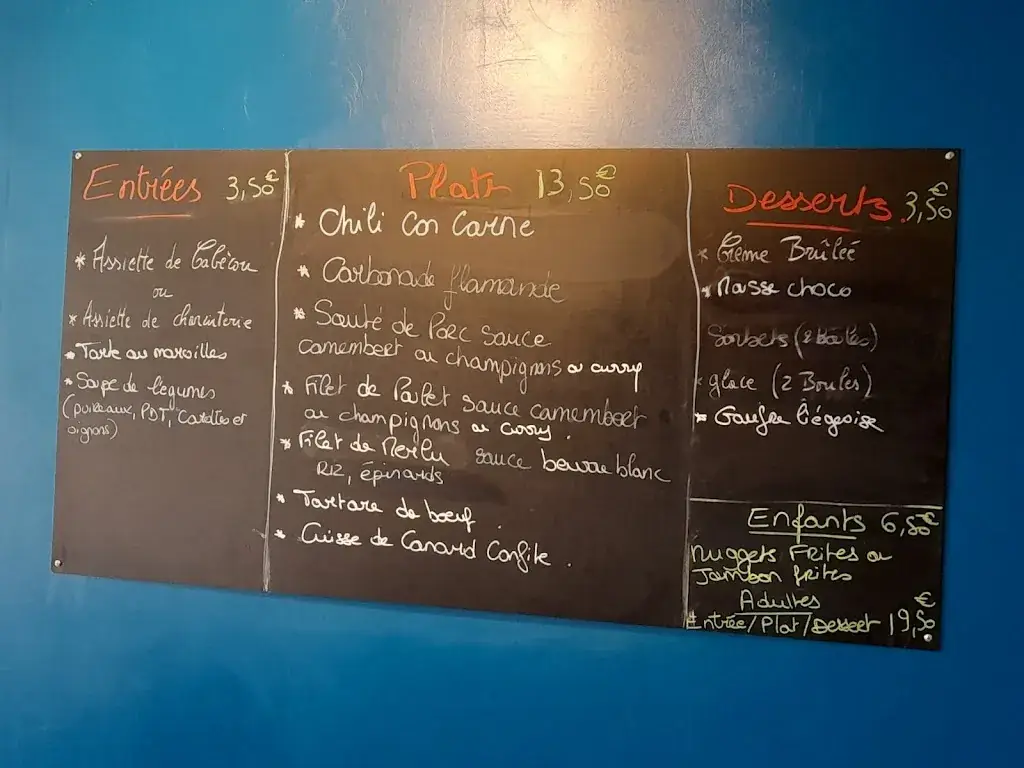 Entrées 3,50€
* Assiette de Cabécou
ou
* Assiette de charcuterie
* Tarte au maroilles
* Soupe de légumes
(poireaux, PDT, Carottes et
oignons)
Plats 13,50€
* Chili Con Carne
* Carbonade flamande
* Sauté de Porc sauce
camembert ou champignons ou curry
* Filet de Poulet sauce camembert
ou champignons ou curry.
* Filet de Merlu sauce beurre blanc
Riz, épinards
* Tartare de boeuf.
* Cuisse de Canard Confite.
Desserts 3,50€
* Crème Brûlée
* Mousse choco
Sorbets (2 boules)
* glace (2 Boules)
* Gaufre liégeoise
Enfants 6,50€
Nuggets Frites ou
Jambon frites
Adultes
Entrée/Plat/Dessert 19,50€